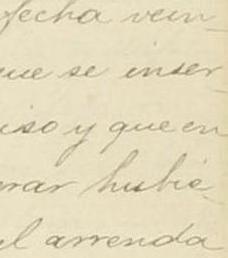 fecha vein-
que se inser-
iso y que en
rar hubie-
el arrenda